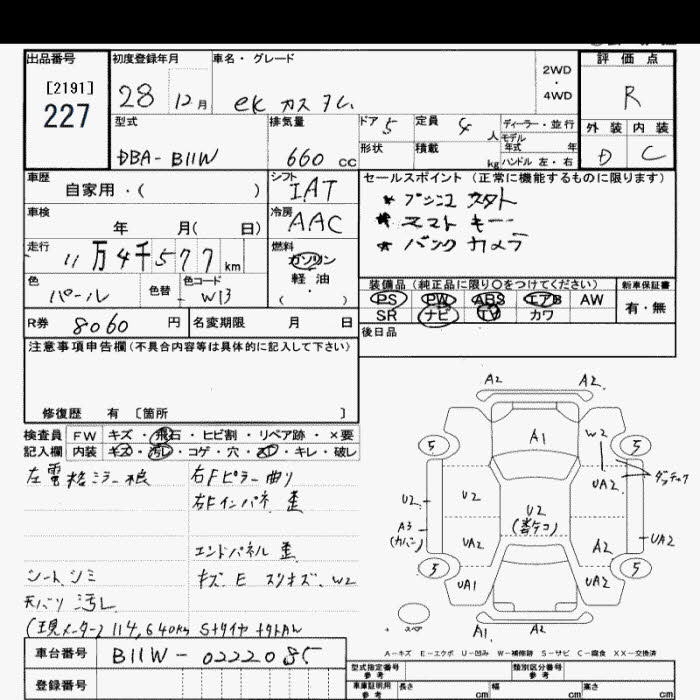 出品番号
[2191]
227
初度登録年月
28
12月
車名・グレード
ek カスタム
2WD
・
4WD
評価点
R
外装 内装
D C
型式
DBA-B11W
排気量
660 cc
ドア 5
定員 4 人
形状
積載 kg
ディーラー・並行
モデル年式 年
ハンドル 左・右
車歴
自家用・( )
シフト
IAT
車検
年 月( 日)
冷房
AAC
走行
11万4千577km
燃料
ガソリン
軽油
・
( )
色
パール
色替
色コード
W13
R券 8060 円
名変期限 月 日
セールスポイント (正常に機能するものに限ります)
* プッシュスタート
* スマートキー
* バックカメラ
装備品 (純正品に限り○をつけてください)
PS PW ABS エアB AW
SR ナビ TV カワ
新車保証書
有・無
後日品
注意事項申告欄(不具合内容等は具体的に記入して下さい)
修復歴 有 〔箇所 〕
検査員
記入欄
FW キズ・飛石・ヒビ割・リペア跡・×要
内装 キズ・汚レ・コゲ・穴・スレ・キレ・破レ
左電格ミラー
右Fピラー曲り
右Fインパネ 歪
エンドパネル 歪
シートシミ
キズ、E スリキズ、W2
天バリ 汚レ
(現メーター) 114,640km Sタイヤ
A2 A2
5 A1 W2 5
UA2
U2 U2 U2
A3
(カバー)
UA2 A2 UA2
5 UA1 UA2 5
A1 A2
A-キズ E-エクボ U-凹み W-補修跡 S-サビ C-腐食 XX-交換済
車台番号 B11W-0222085
登録番号
型式指定番号
参考
類別区分番号
参考
車庫証明用
参考
長さ cm 幅 cm 高さ cm